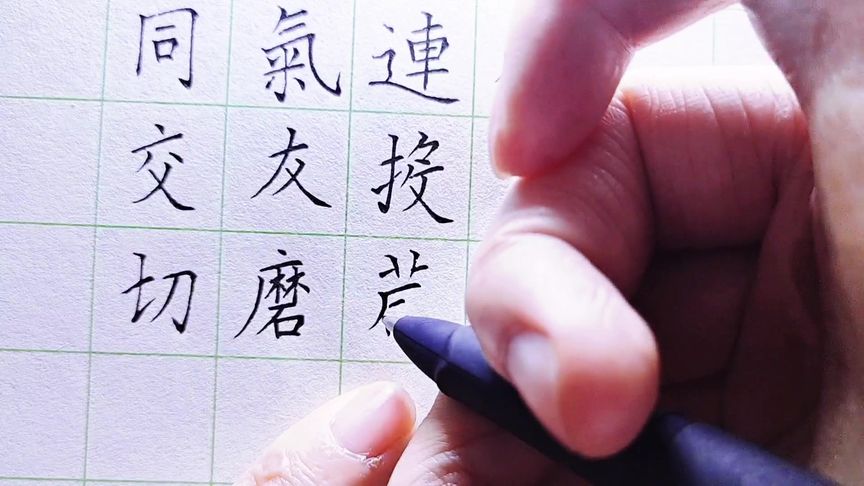 同氣連
交友投
切磨